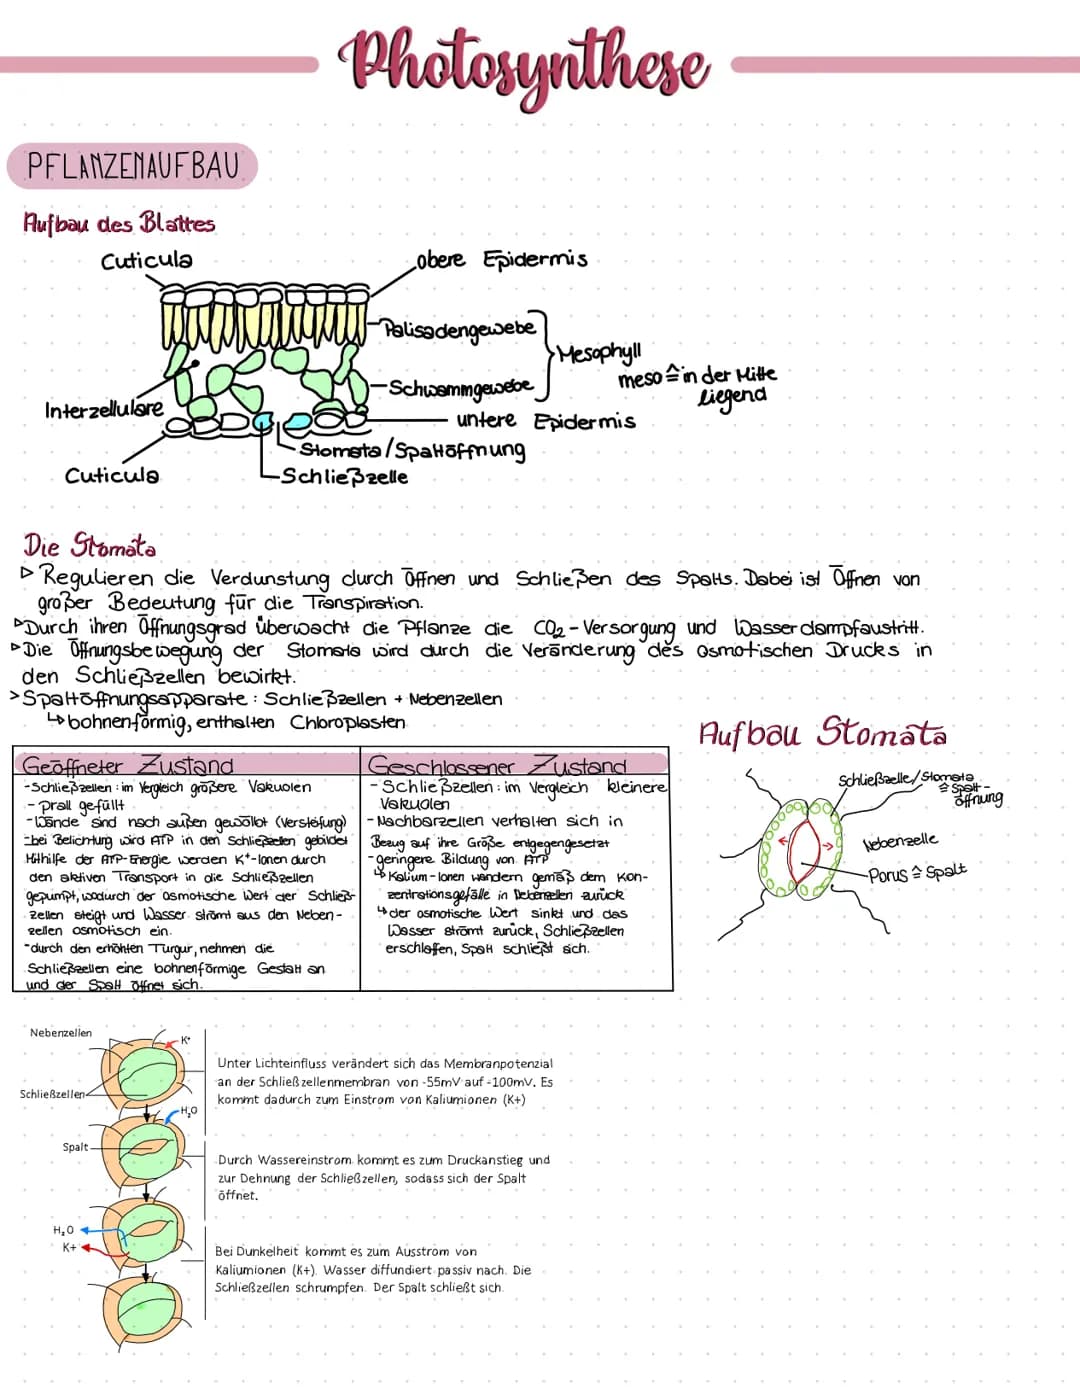 Photosynthese
PFLANZENAUFBAU
Aufbau des Blattes
Cuticula
obere Epidermis
Palisadengewebe
Mesophyll
meso ≙ in der Mitte
liegend
Schwammgewebe
Interzellulare
untere Epidermis
Stomata/Spaltöffnung
Cuticula
Schließzelle
Die Stomata
▷ Regulieren die Verdunstung durch Öffnen und Schließen des Spalts. Dabei ist Öffnen von
großer Bedeutung für die Transpiration.
▷ Durch ihren Öffnungsgrad überwacht die Pflanze die CO₂-Versorgung und Wasserdampfaustritt.
▷ Die Öffnungsbewegung der Stomata wird durch die Veränderung des osmotischen Drucks in
den Schließzellen bewirkt.
> Spaltöffnungsapparate: Schließzellen + Nebenzellen
↳ bohnenförmig, enthalten Chloroplasten
Geöffneter Zustand
- Schließzellen: im Vergleich größere Vakuolen
- prall gefüllt
- Wände sind nach außen gewölbt (Verstöfung)
- bei Belichtung wird ATP in den Schließzellen gebildet
Mithilfe der ATP-Energie werden K⁺-Ionen durch
den aktiven Transport in die Schließzellen
gepumpt, wodurch der osmotische Wert der Schließ-
zellen steigt und Wasser strömt aus den Neben-
zellen osmotisch ein.
- durch den erhöhten Turgur, nehmen die
Schließzellen eine bohnenförmige Gestalt an
und der Spalt öffnet sich.
Geschlossener Zustand
- Schließzellen: im Vergleich kleinere
Vakuolen
- Nachbarzellen verhalten sich in
Bezug auf ihre Größe entgegengesetzt
- geringere Bildung von ATP
↳ Kalium-Ionen wandern gemäß dem Kon-
zentrationsgefälle in Nebenzellen zurück
↳ der osmotische Wert sinkt und das
Wasser strömt zurück, Schließzellen
erschlaffen, Spalt schließt sich.
Aufbau Stomata
Schließzelle/Stomata
≙ Spalt-
öffnung
Nebenzelle
Porus ≙ Spalt
Nebenzellen
K⁺
Schließzellen
H₂O
Spalt
H₂O
K+
Unter Lichteinfluss verändert sich das Membranpotenzial
an der Schließzellenmembran von -55mV auf -100mV. Es
kommt dadurch zum Einstrom von Kaliumionen (K+)
Durch Wassereinstrom kommt es zum Druckanstieg und
zur Dehnung der Schließzellen, sodass sich der Spalt
öffnet.
Bei Dunkelheit kommt es zum Ausstrom von
Kaliumionen (K+). Wasser diffundiert passiv nach. Die
Schließzellen schrumpfen. Der Spalt schließt sich.